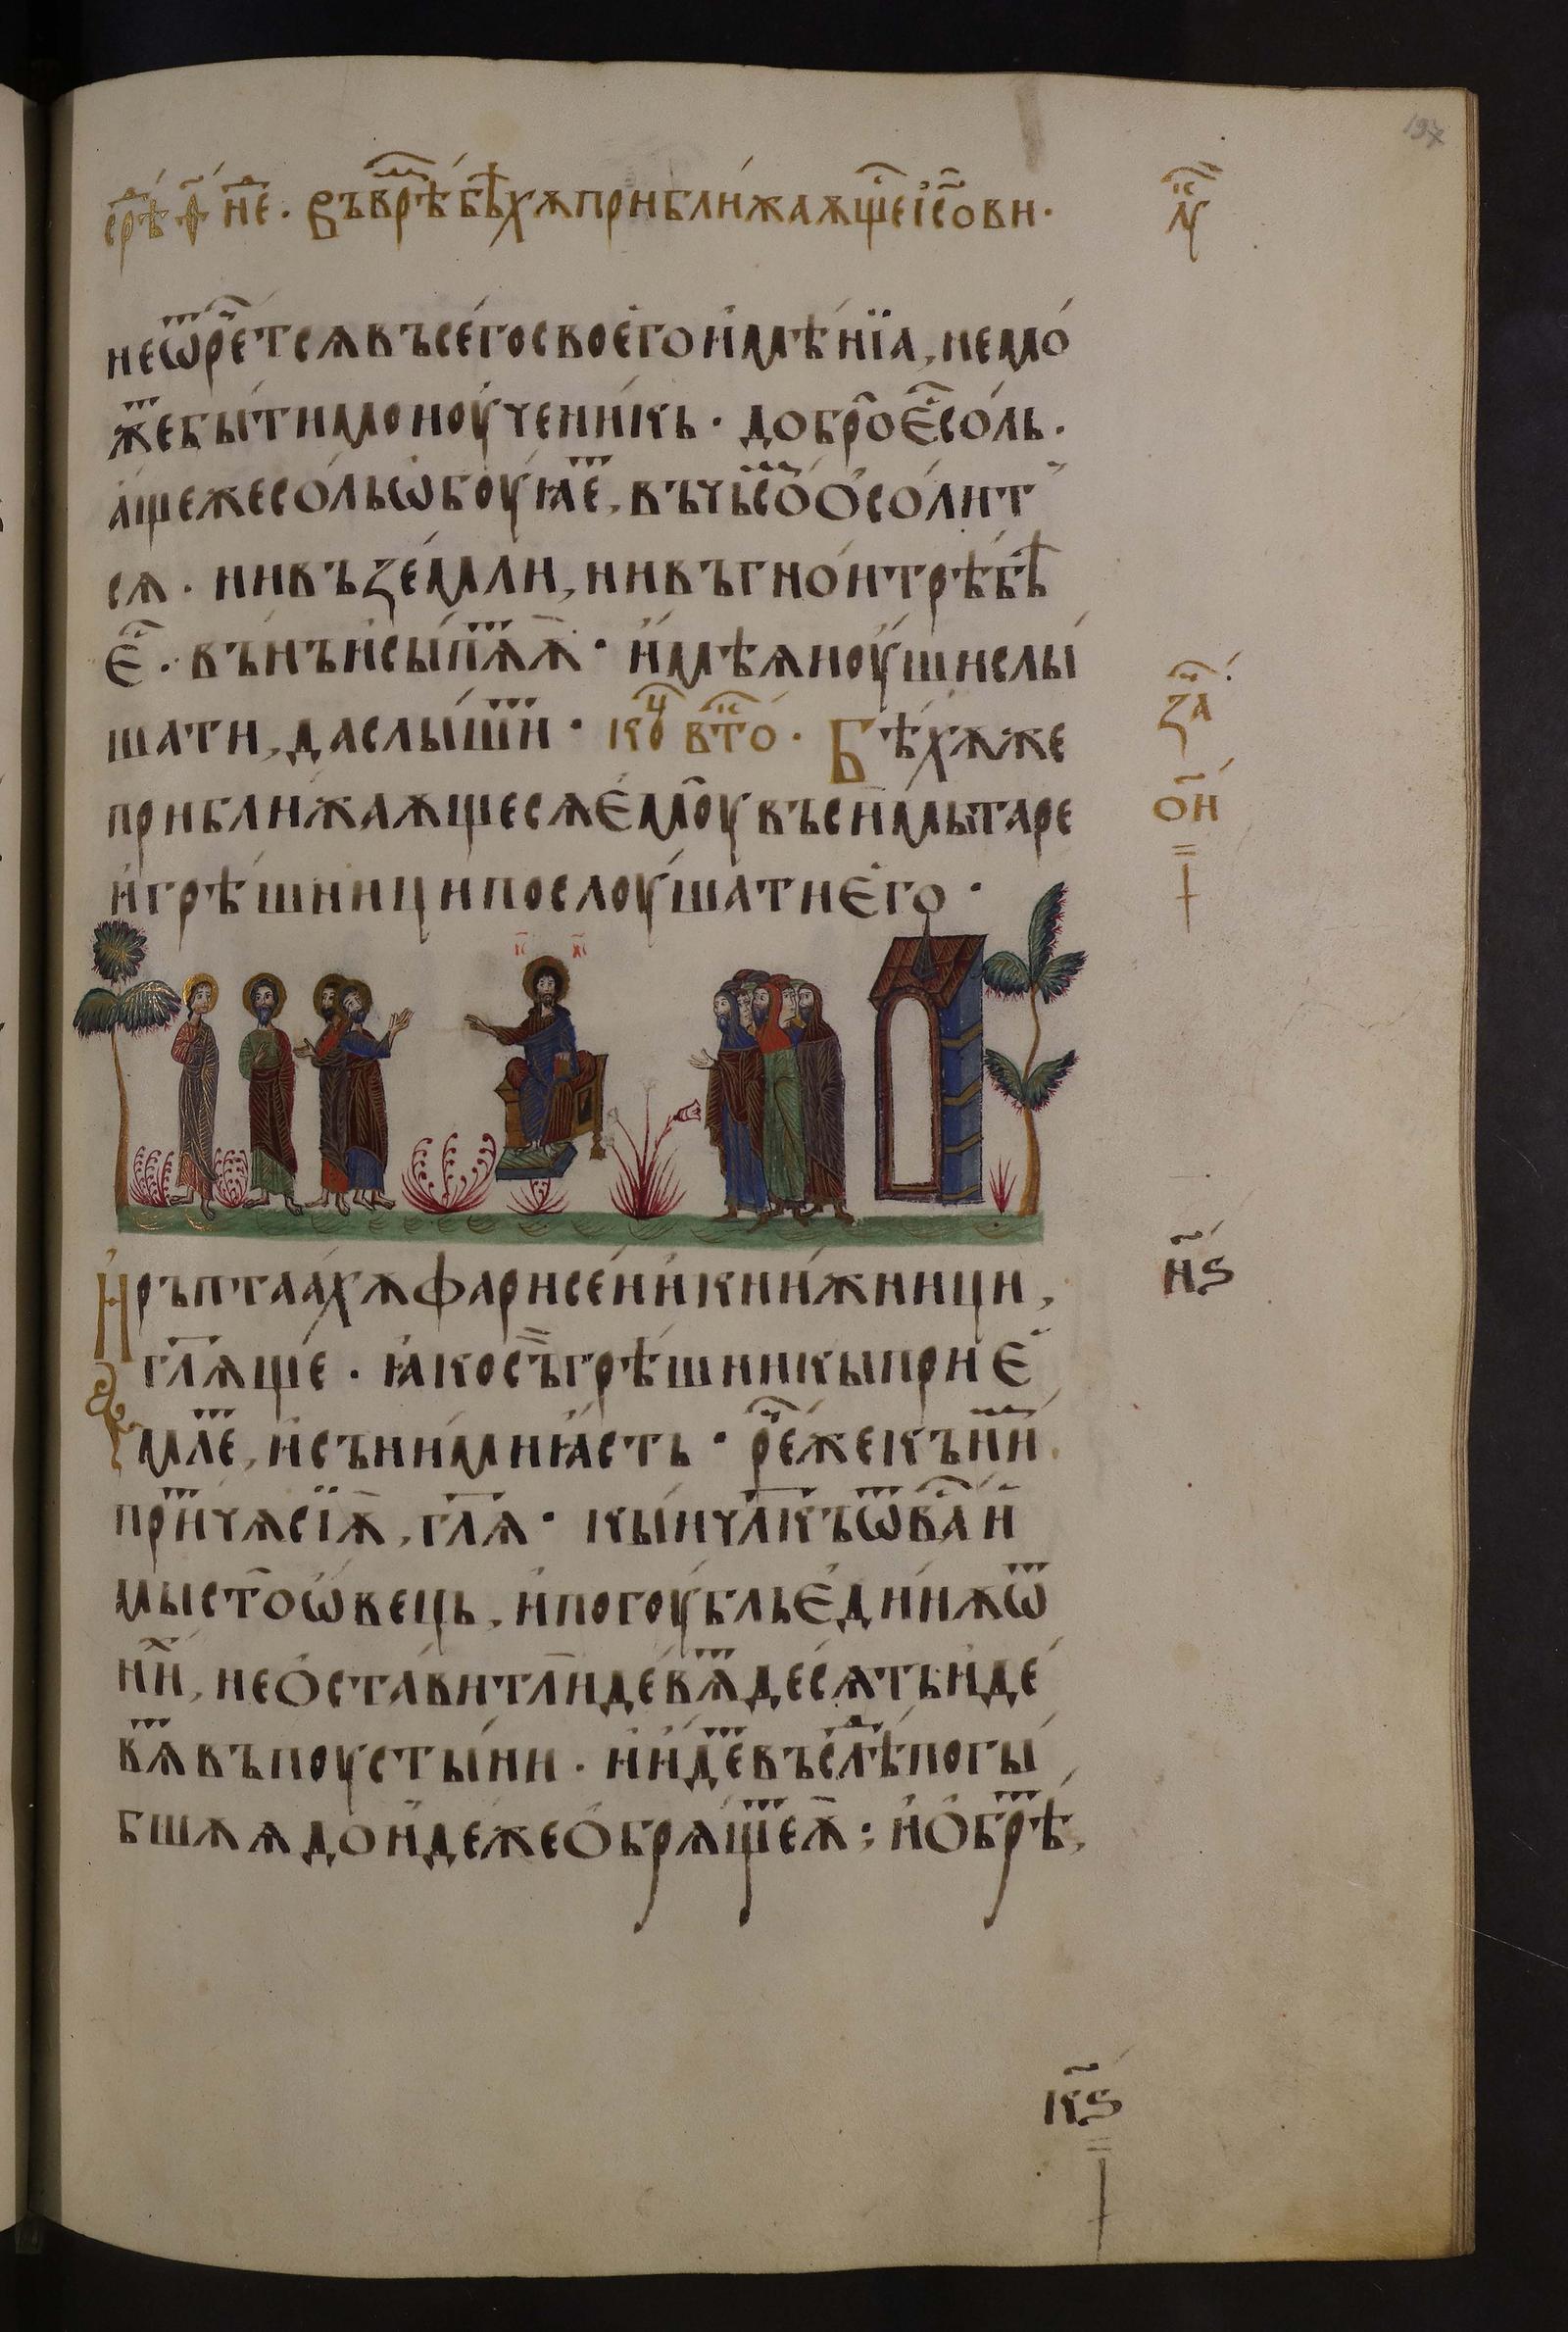 197
срѣ ꙗ҃ не҃. Въ врѣ бѣхѫ приближаѫщеі҃сови·
не ѿречетсѧ въсегосвоегоимѣнїа, немо
жебытимоиоученикь· доброес҃оль·
ащежесольѡбоуꙗе, въчьсоосолит
сѧ· нивъземли, нивъгноитрѣбѣ
е҃· вънъисыпаѧ· имѣѧиоушислы
шати, даслыши· кѡ҃ц вто· Бѣхѫже
приближаѫщесѧемоу въси мытаре
игрѣшниципослоушатиего·
і҃с х҃с
Иръптаахѫфарисеиикнижници,
гл҃ѧще· ꙗкосъгрѣшникыприе
мле, исънимиꙗсть· реже къни
причѧсїѫ, гл҃ѧ· кыичл҃къѿва и
мыстоѡвець, ипогоубльединѫѿ
ни, неоставитлидевѧдесѧтьиде
вѧвъпоустыни· ииде въслѣпогы
бшѫѧдоидежеобрѧщеѧ: иобрѣ,
за҃
ои҃
н҃ѕ
к҃ѕ